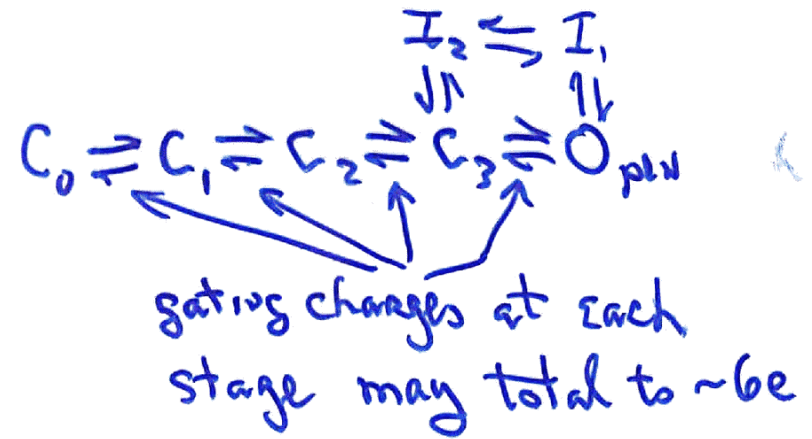 I₂ ⇌ I₁
⇅ ⇅
C₀ ⇌ C₁ ⇌ C₂ ⇌ C₃ ⇌ Open
gating charges at each
stage may total to ~6e